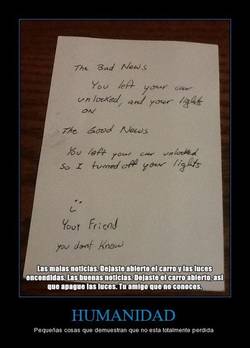 The Bad News
You left your car
unlocked, and your lights
on
The Good News
You left your car unlocked
So I turned off your lights
Your Friend
you dont know
Las malas noticias. Dejaste abierto el carro y las luces
encendidas. Las buenas noticias. Dejaste el carro abierto, asi
que apague las luces. Tu amigo que no conoces.
HUMANIDAD
Pequeñas cosas que demuestran que no esta totalmente perdida